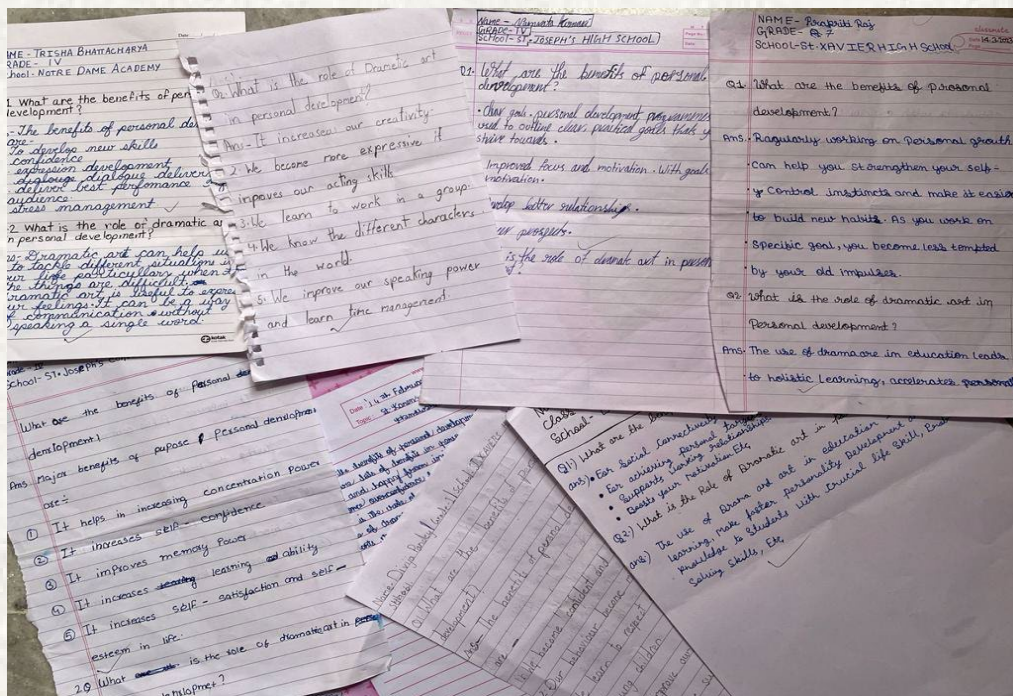 ME - TRISHA BHATTACHARYA
RADE - IV
hool - NOTRE DAME ACADEMY
1 What are the benefits of per
development?
- The benefits of personal de
are-
To develop new skills
confidence
expression development
dialogue deliver
deliver best perfomance
audience.
stress management
2 What is the role of dramatic a
n personal development?
s- Dramatic art can help u
to tackle different situations i
ur life particullary when t
he things are difficult.
ramatic art is useful to expre
ur feelings. It can be a way
f communication without
speaking a single word.
kotak
Q2- What is the role of Dramatic art
in personal development?
Ans- It increases our creativity.
2. We become more expressive it
inpoves our acting skill.
3. We learn to work in a group.
4. We know the different characters
in the world.
5. We improve our speaking power
and learn time management.
Name - Namrata Kumari
GRADE - IV
SCHOOL - ST. JOSEPH'S HIGH SCHOOL
Q1- What are the benefits of personal
development?
• Clear goals. personal development programmes
used to outline clear, practical goals that y
strive towards.
Improved focus and motivation. With goals
motivation.
velop better relationships.
prospects.
is the role of dramatic art in person
?
NAME - Prakriti Raj
GRADE - 7
SCHOOL - St. XAVIER HIGH School
Date 14.2.
Q1. What are the benefits of presonal
development?
Ans. Ragularly working on Personal growth
can help you strengthen your self-
y control instincts and make it easier
to build new habits. As you work on
specific goal, you become less tempted
by your old impulses.
Q2. What is the role of dramatic art in
Personal development?
Ans. The use of drama are in education leads
to holistic learning, accelerates personal
School - ST. Joseph's
What are the benefits of Personal
development!
Ans Major benefits of pupose personal developmen
are :-
① It helps in increasing concentration Power
② It increases self - confidence
③ It improves memory Power
④ It increases learning ability
⑤ It increases self - satisfaction and self -
esteem in life.
2Q What is the role of dramatic art in
Date 14th Februa
Topic St. Karen's
the benefits of personal develop
Name: Divya
School
Q1 What are the benefits of
development?
Ans- The benefits of persona de
are -
We become confident and
Our behaviour become
learn to respect
children
Class
School -
Q1.) What are the be
ans) • For Social Connectivit
• For achieving personal targe
• Supports loving relationships
• Boosts your motivation Etc,
Q2.) What is the Role of Dramatic art in
ans) The use of Drama and art in education
learning, make faster Personality Development a
knowledge to students with Crucial life Skill,
Solving Skills, Etc